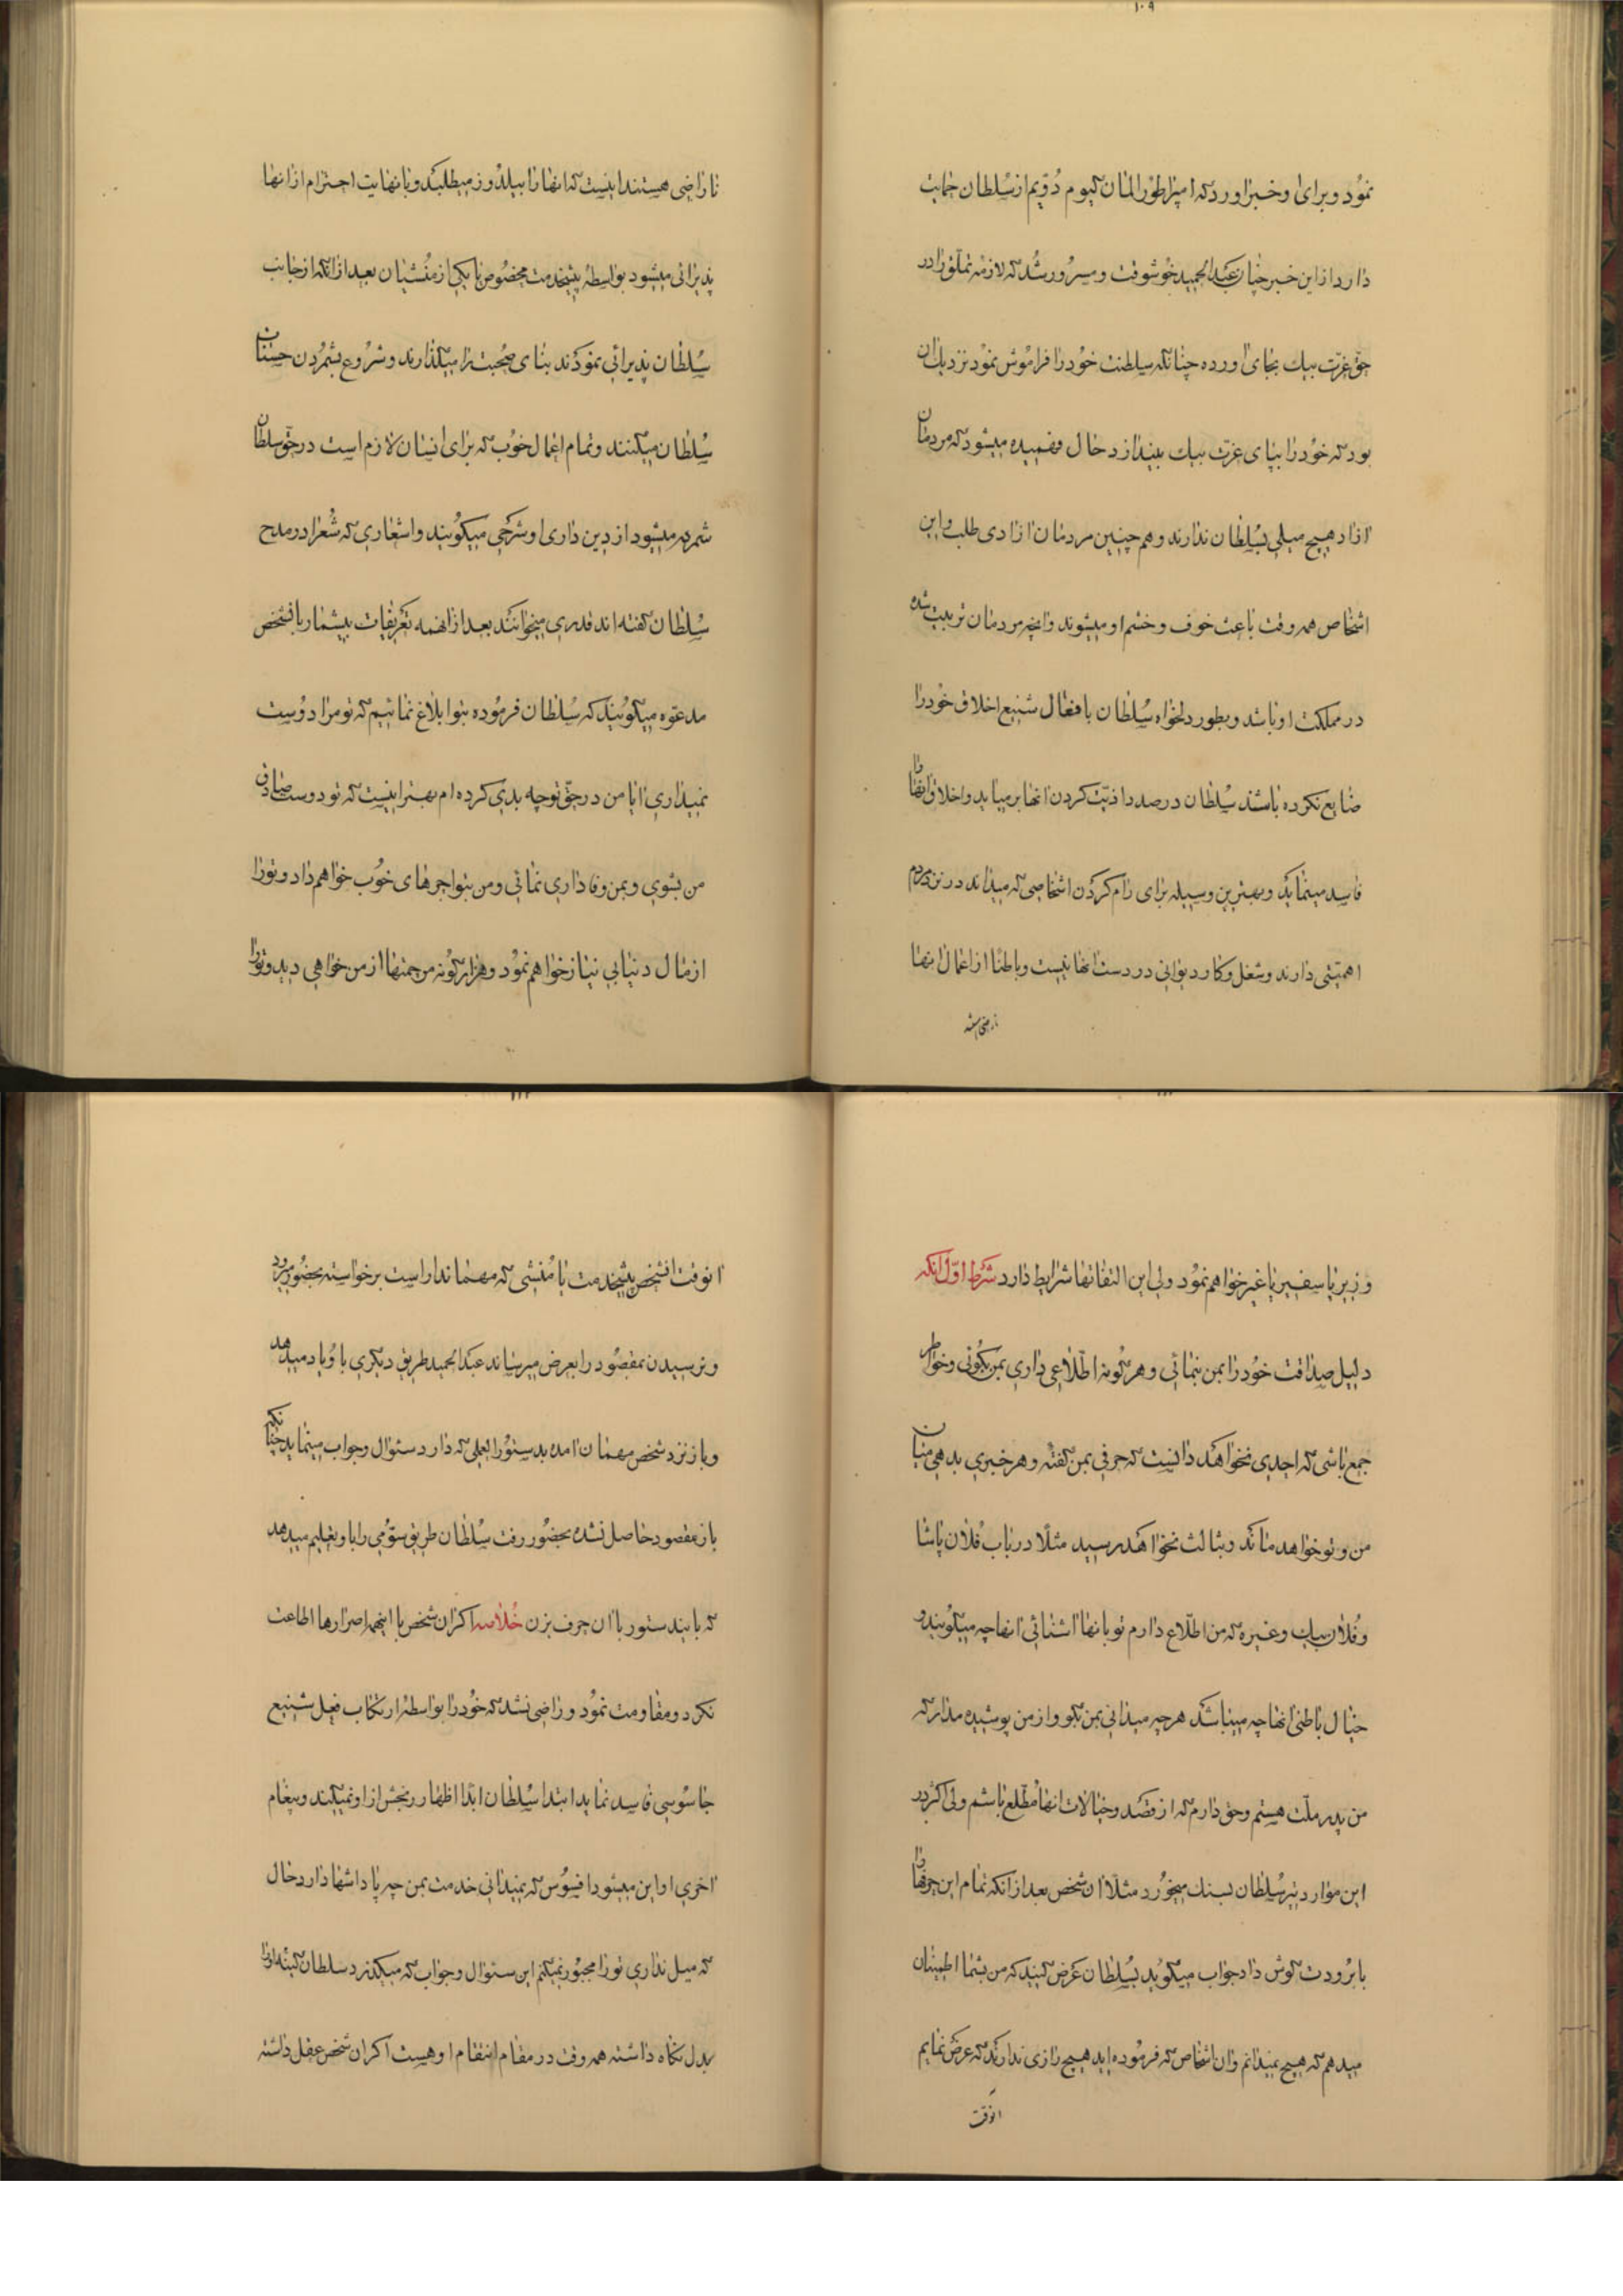 ۱۰۹
نمود و برای او خبر اورد که امپراطور المان کیوم دویم از سلطان حمایت
دارد از این خبر چنان عبدالحمید خوشوقت و مسرور شد که لازمه تملق را در
حق عزت بیک بجای اورده چنانکه سلطنت خود را فراموش نمود نزدیک ان
بود که خود را بپای عزت بیک بیندازد حال فهمیده میشود که مردمان
ازاد هیچ میلی بسلطان ندارند و هم چنین مردمان ازادی طلب و این
اشخاص همه وقت باعث خوف و خشم او میشوند و انچه مردمان تربیت شده
در مملکت او باشد و بطور دلخواه سلطان بافعال شنیع اخلاق خود را
ضایع نکرده باشند سلطان در صدد اذیت کردن انها بر میاید و اخلاق انها را
فاسد مینماید و بهترین وسیله برای رام کردن اشخاصی که میداند در نزد مردم
اهمیتی دارند و شغل و کار دیوانی در دست انها نیست و باطنا از اعمال انها
ناراضی هستند
ناراضی هستند اینست که انها را بیلدوز میطلبد و با نهایت احترام از انها
پذیرائی میشود بواسطه پیشخدمت مخصوص یا یکی از منشیان بعد از انکه از جانب
سلطان پذیرائی نمودند بنای صحبت را میگذارند و شروع بشمردن حسنات
سلطان میکنند و تمام اعمال خوب که برای انسان لازم است در حق سلطان
شمرده میشود از دین داری او شرحی میگویند و اشعاری که شعرا در مدح
سلطان گفته اند قدری میخوانند بعد از انهمه تعریفات بیشمار با شخص
مدعوه میگویند که سلطان فرموده بتو ابلاغ نمائیم که تو مرا دوست
نمیداری ایا من در حق تو چه بدی کرده ام بهتر اینست که تو دوست صادق
من بشوی و بمن وفاداری نمائی و من بتو اجرهای خوب خواهم داد و تو را
از مال دنیا بی نیاز خواهم نمود و هزار گونه مرحمتها از من خواهی دید و تو را
وزیر یا سفیر یا غیر خواهم نمود ولی این التفاتها شرایط دارد شرط اول انکه
دلیل صداقت خود را بمن بنمائی و هر گونه اطلاعی داری بمن بگوئی و خواطر
جمع باشی که احدی نخواهد دانست که حرفی بمن گفته و هر خبری بدهی میان
من و تو خواهد ماند و بثالث نخواهد رسید مثلا در باب فلان پاشا
و فلان بیک و غیره که من اطلاع دارم تو بانها اشنائی انها چه میگویند و
خیال باطنی انها چه میباشد هر چه میدانی بمن بگو و از من پوشیده مدار که
من پدر ملت هستم و حق دارم که از قصد و خیالات انها مطلع باشم ولی اکثر در
این موارد تیر سلطان بسنک میخورد مثلا ان شخص بعد از انکه تمام این حرفها را
با برودت گوش داد جواب میگوید بسلطان عرض کنید که من بشما اطمینان
میدهم که هیچ نمیدانم و ان اشخاص که فرموده اید هیچ رازی ندارند که عرض نمایم
انوقت
انوقت انشخص پیشخدمت یا منشی که مهماندار است برخواسته بحضور میرود
و نرسیدن بمقصود را بعرض میرساند عبدالحمید طریق دیگری باو یاد میدهد
و باز نزد شخص مهمان امده بدستورالعملی که دارد سئوال و جواب مینماید چنانکه
باز مقصود حاصل نشده بحضور رفت سلطان طریق سومی را باو تعلیم میدهد
که بایندستور با ان حرف بزن خلاصه اگر ان شخص با اینهمه اصرارها اطاعت
نکرد و مقاومت نمود و راضی نشد که خود را بواسطه ارتکاب فعل شنیع
جاسوسی فاسد نماید ابتدا سلطان ابدا اظهار رنجش از او نمیکند و پیغام
اخری او این میشود افسوس که نمیدانی خدمت بمن چه پاداشها دارد حال
که میل نداری تو را مجبور نمیکنم این سئوال و جواب که میگذرد سلطان کینه او را
بدل نگاه داشته همه وقت در مقام انتقام او هست اگر ان شخص عقل داشته